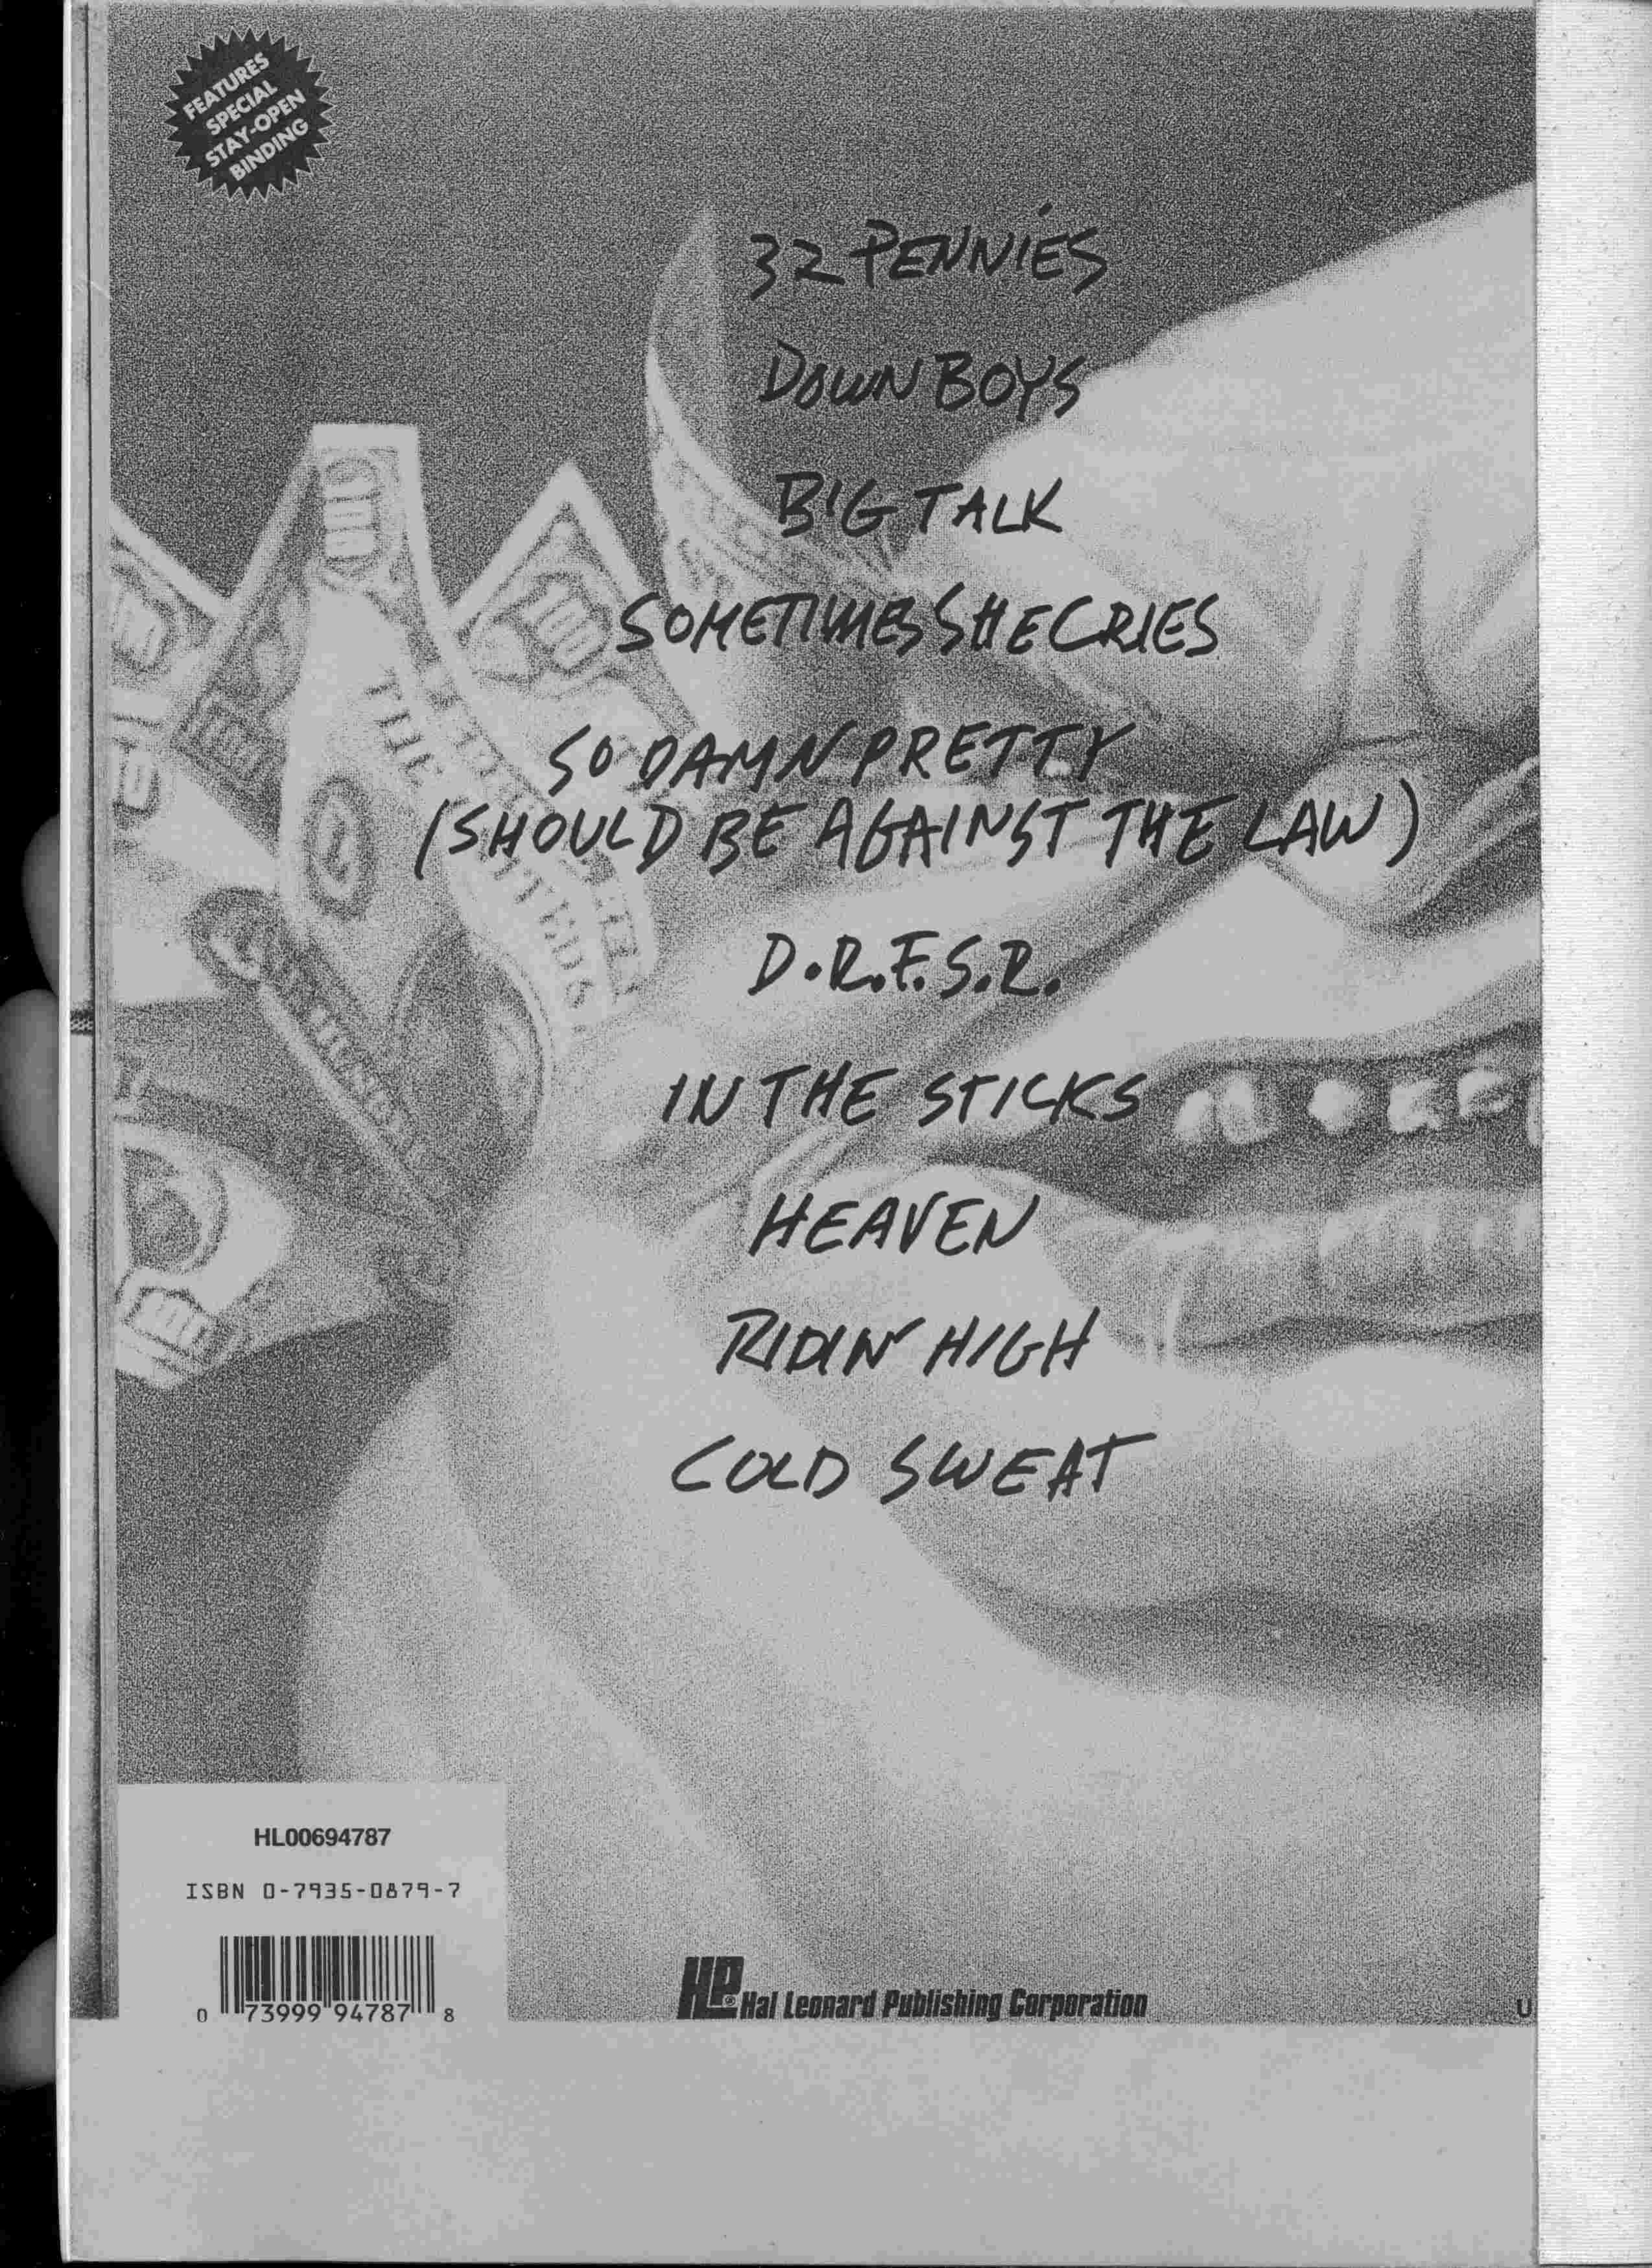 FEATURES
SPECIAL
STAY-OPEN
BINDING
32 PENNIES
DOWN BOYS
BIG TALK
SOMETIMES SHE CRIES
SO DAMN PRETTY
(SHOULD BE AGAINST THE LAW)
D.R.F.S.R.
IN THE STICKS
HEAVEN
RIDIN' HIGH
COLD SWEAT
100
100
THE
HL00694787
ISBN 0-7935-0879-7
0 73999 94787 8
HP® Hal Leonard Publishing Corporation
U